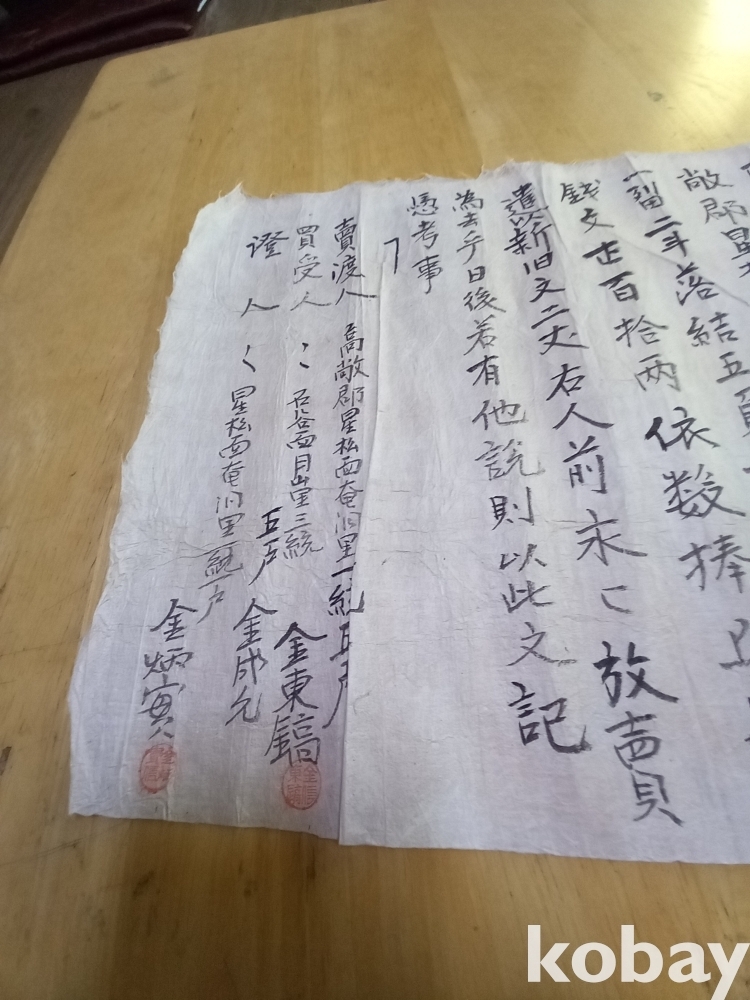 敞郡星
二斗落結五
錢文 百拾兩依数捧
遣以新旧文二丈右人前永〻放賣
為去乎日後若有他說則以此文記
憑考事
賣渡人 高敞郡星松面奄洞里一統五戶 金東鎬
買受人〻 石谷面月山里三統五戶 金成允
證人〻 星松面奄洞里一統一戶 金炳寅
kobay